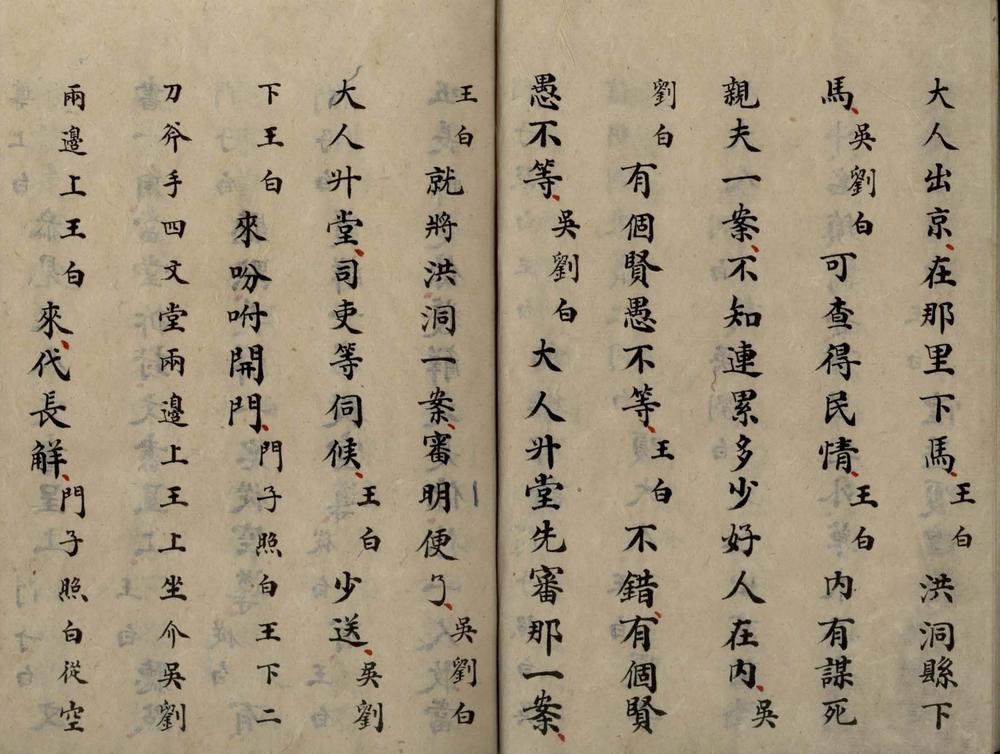 大人出京、在那里下馬、王白洪洞縣下
馬、吳劉白可查得民情、王白內有謀死
親夫一案、不知連累多少好人在內、吳
劉白有個賢愚不等、王白不錯、有個賢
愚不等、吳劉白大人升堂先審那一案、
王白就將洪洞一案、審明便了、吳劉白
大人升堂、司吏等伺候、王白少送、吳劉
下王白來吩咐開門、門子照白王下二
刀斧手四文堂兩邊上王上坐介吳劉
兩邊上王白來、代長解、門子照白從空